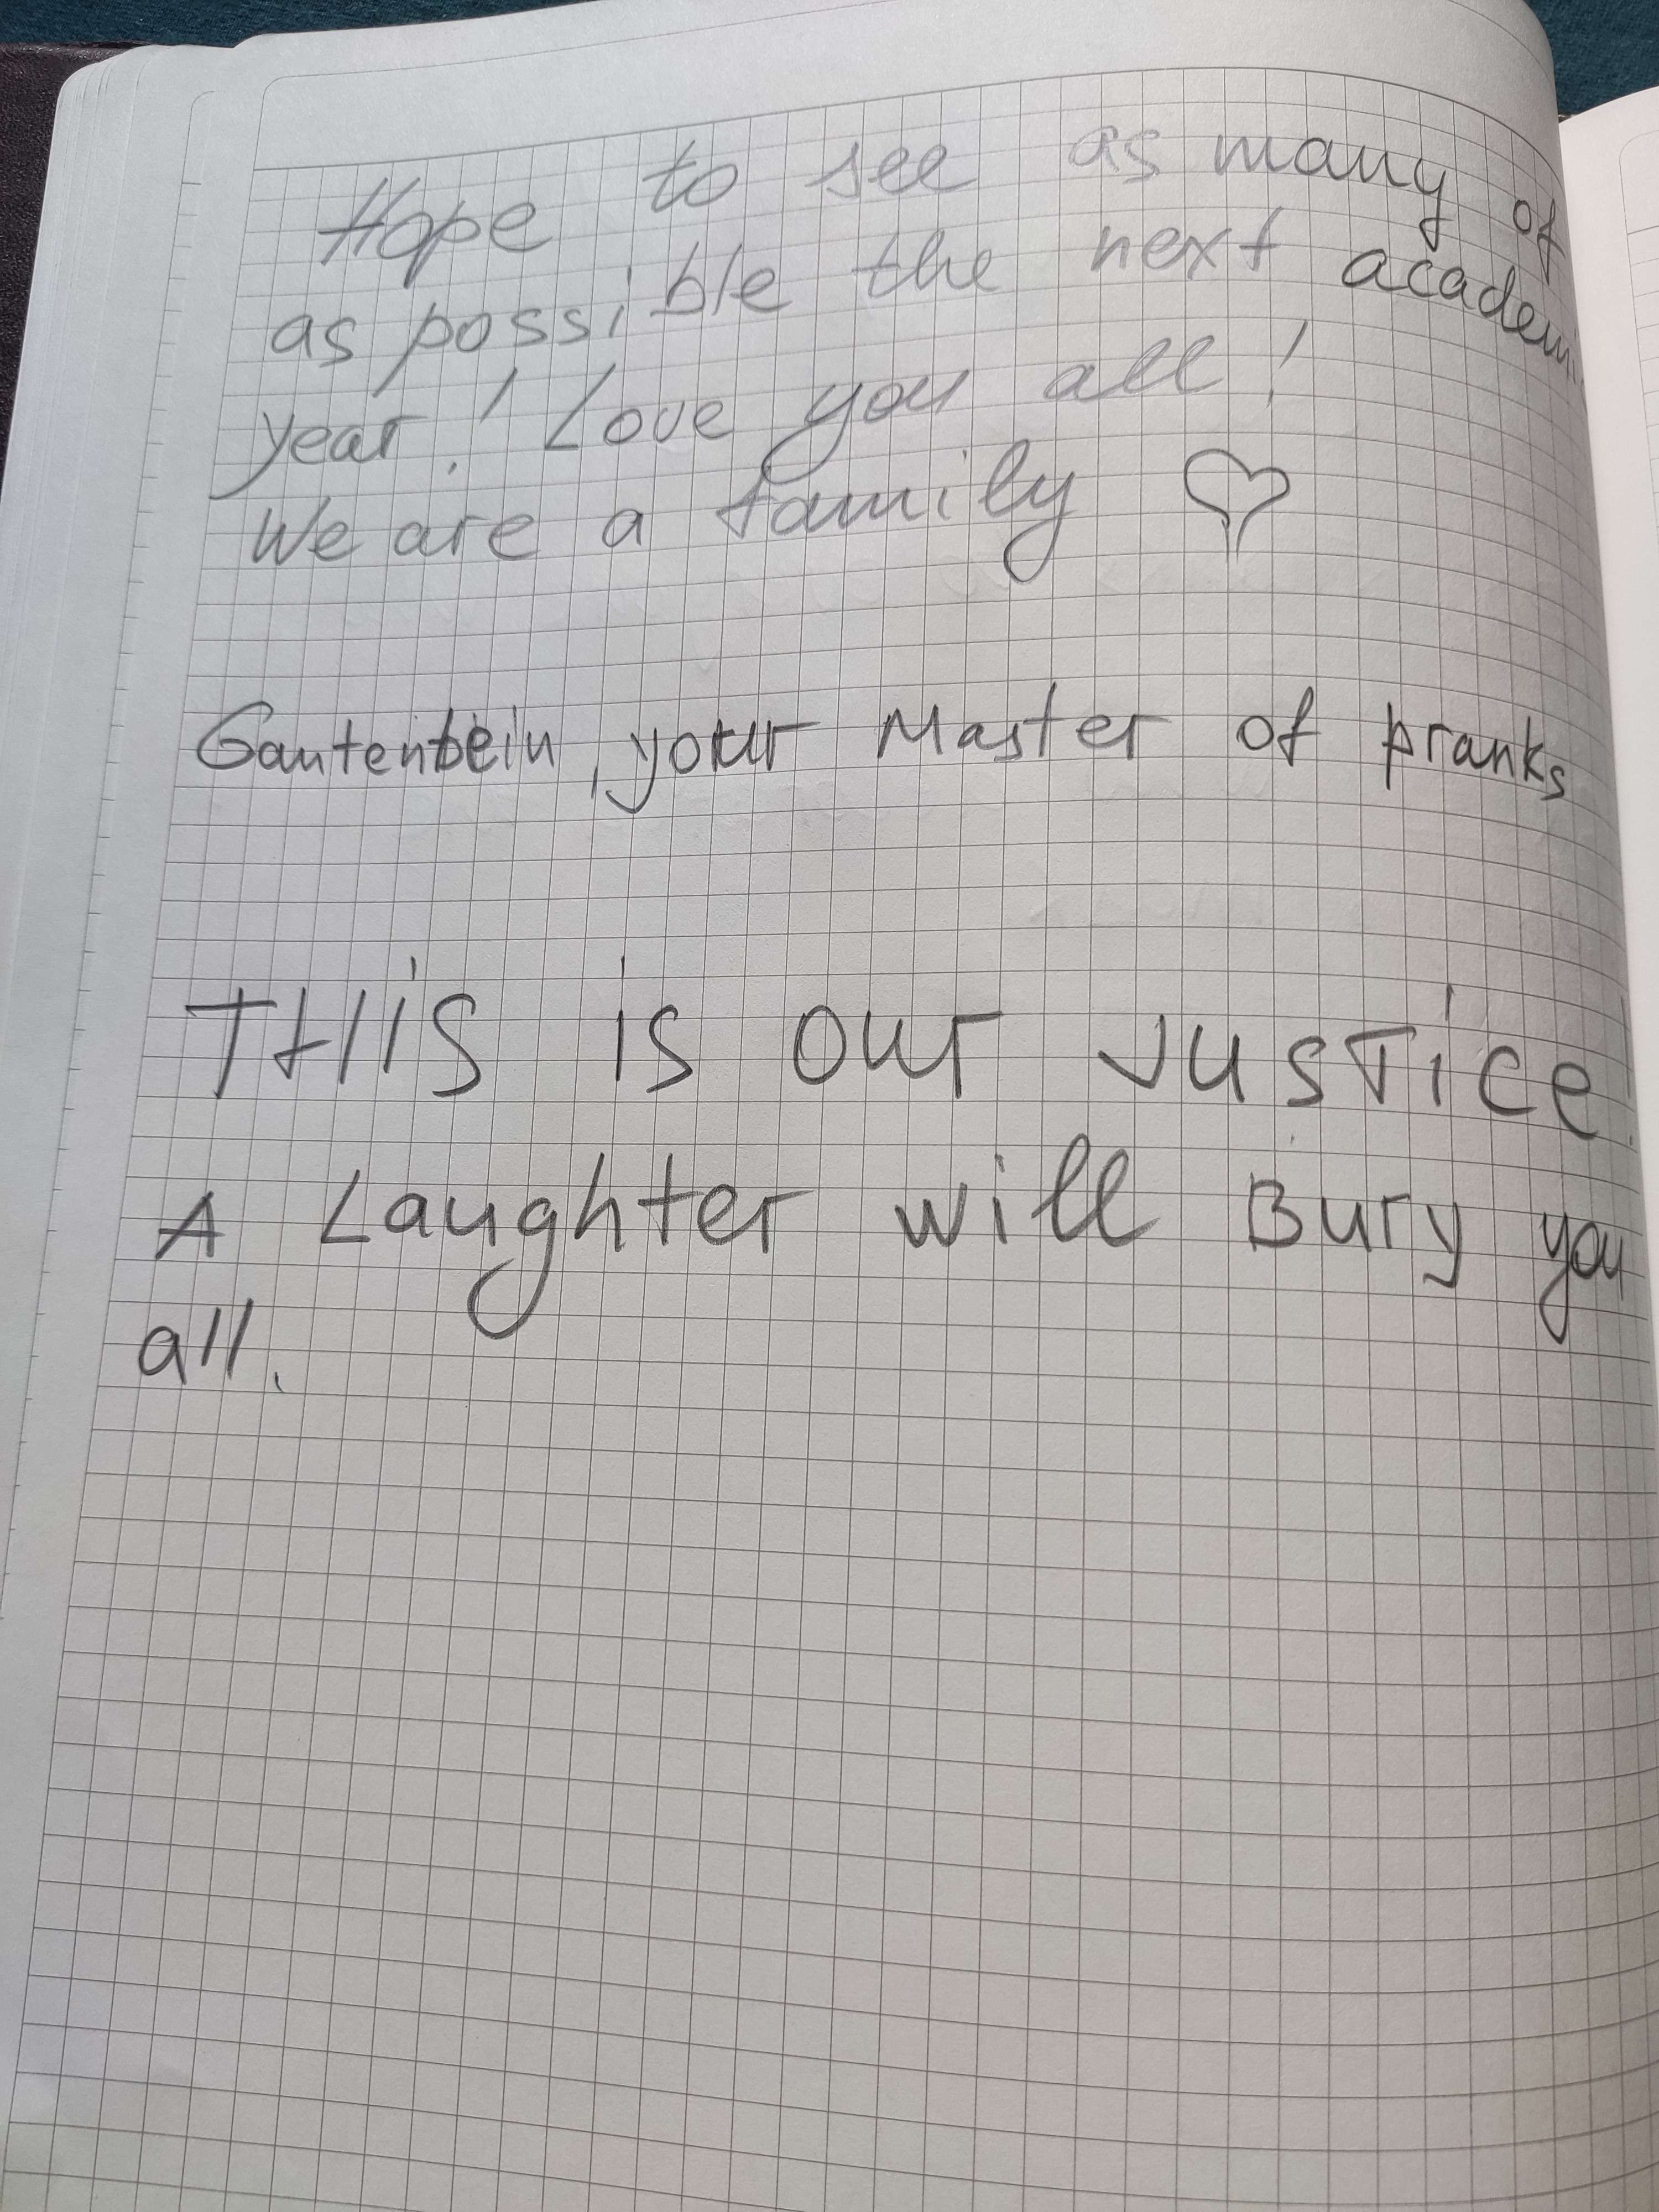 Hope to see as many of
as possible the next academic
year! Love you all!
We are a family ♡
Gantenbein, your Master of pranks
THiS iS our JuSTice!
A Laughter will Bury you
all.